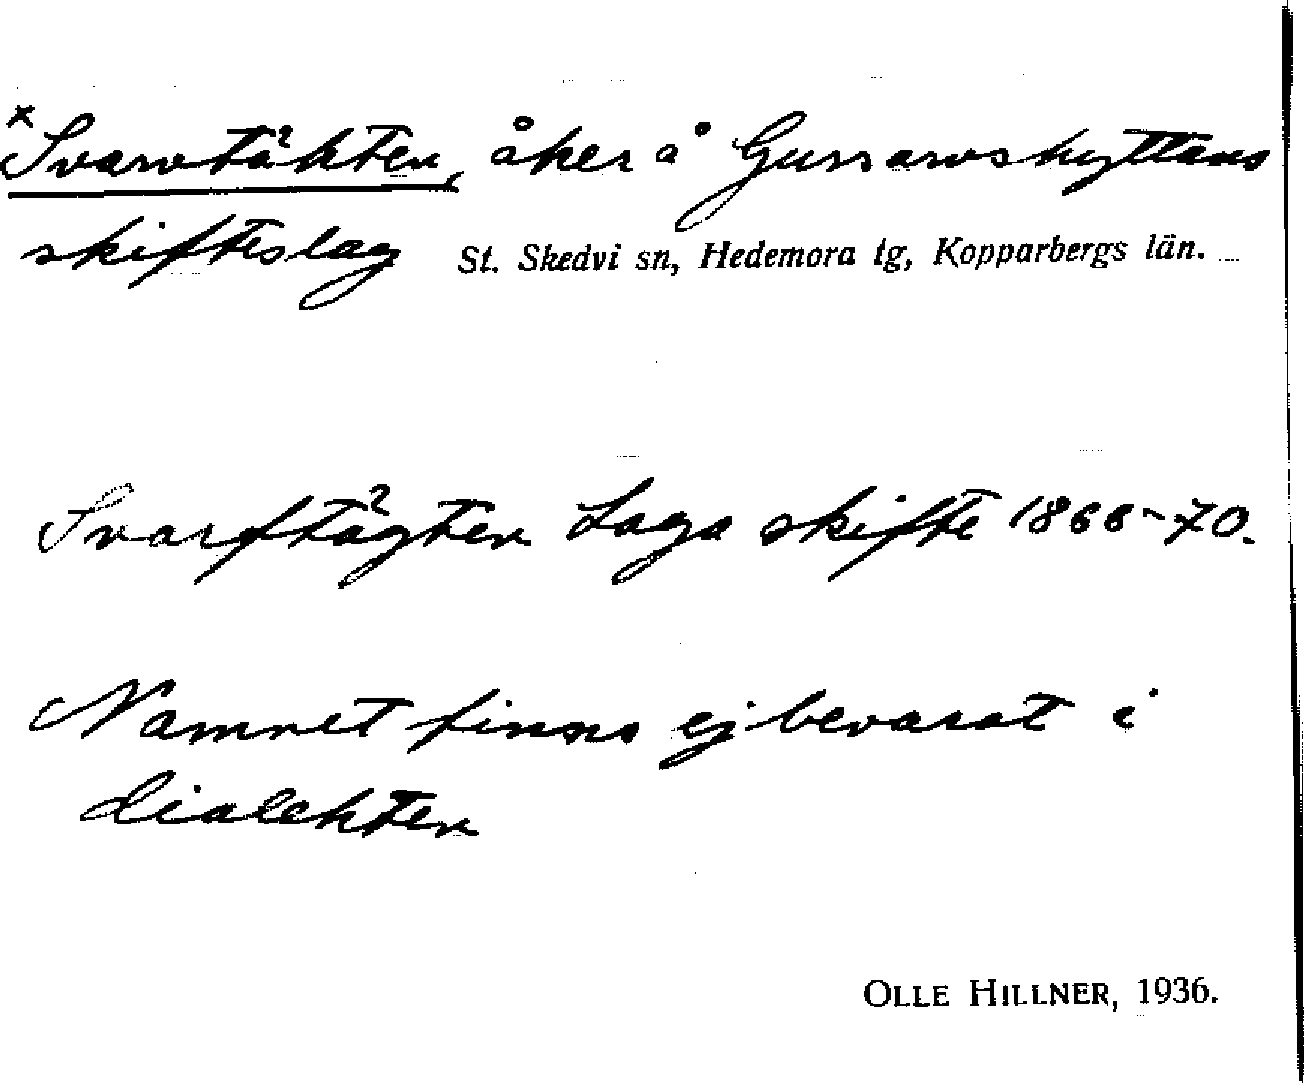 ×Svarvtäkten, åker å Gussarvshyttans
skifteslag St. Skedvi sn, Hedemora tg, Kopparbergs län.
Svarftägten Laga skifte 1866-70.
Namnet finns ej bevarat i
dialekten
OLLE HILLNER, 1936.